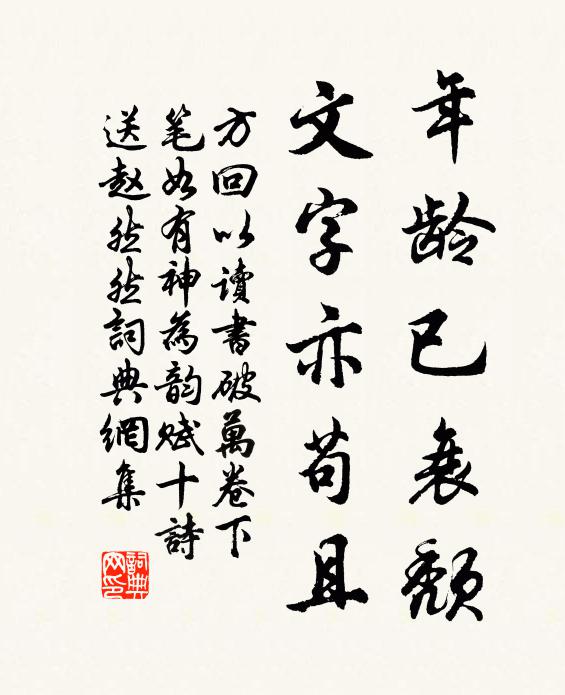 年龄已衰颓
文字亦苟且
方回以讀書破萬卷下
笔如有神為韵赋十詩
送赵然然詞典網集
詞典网印